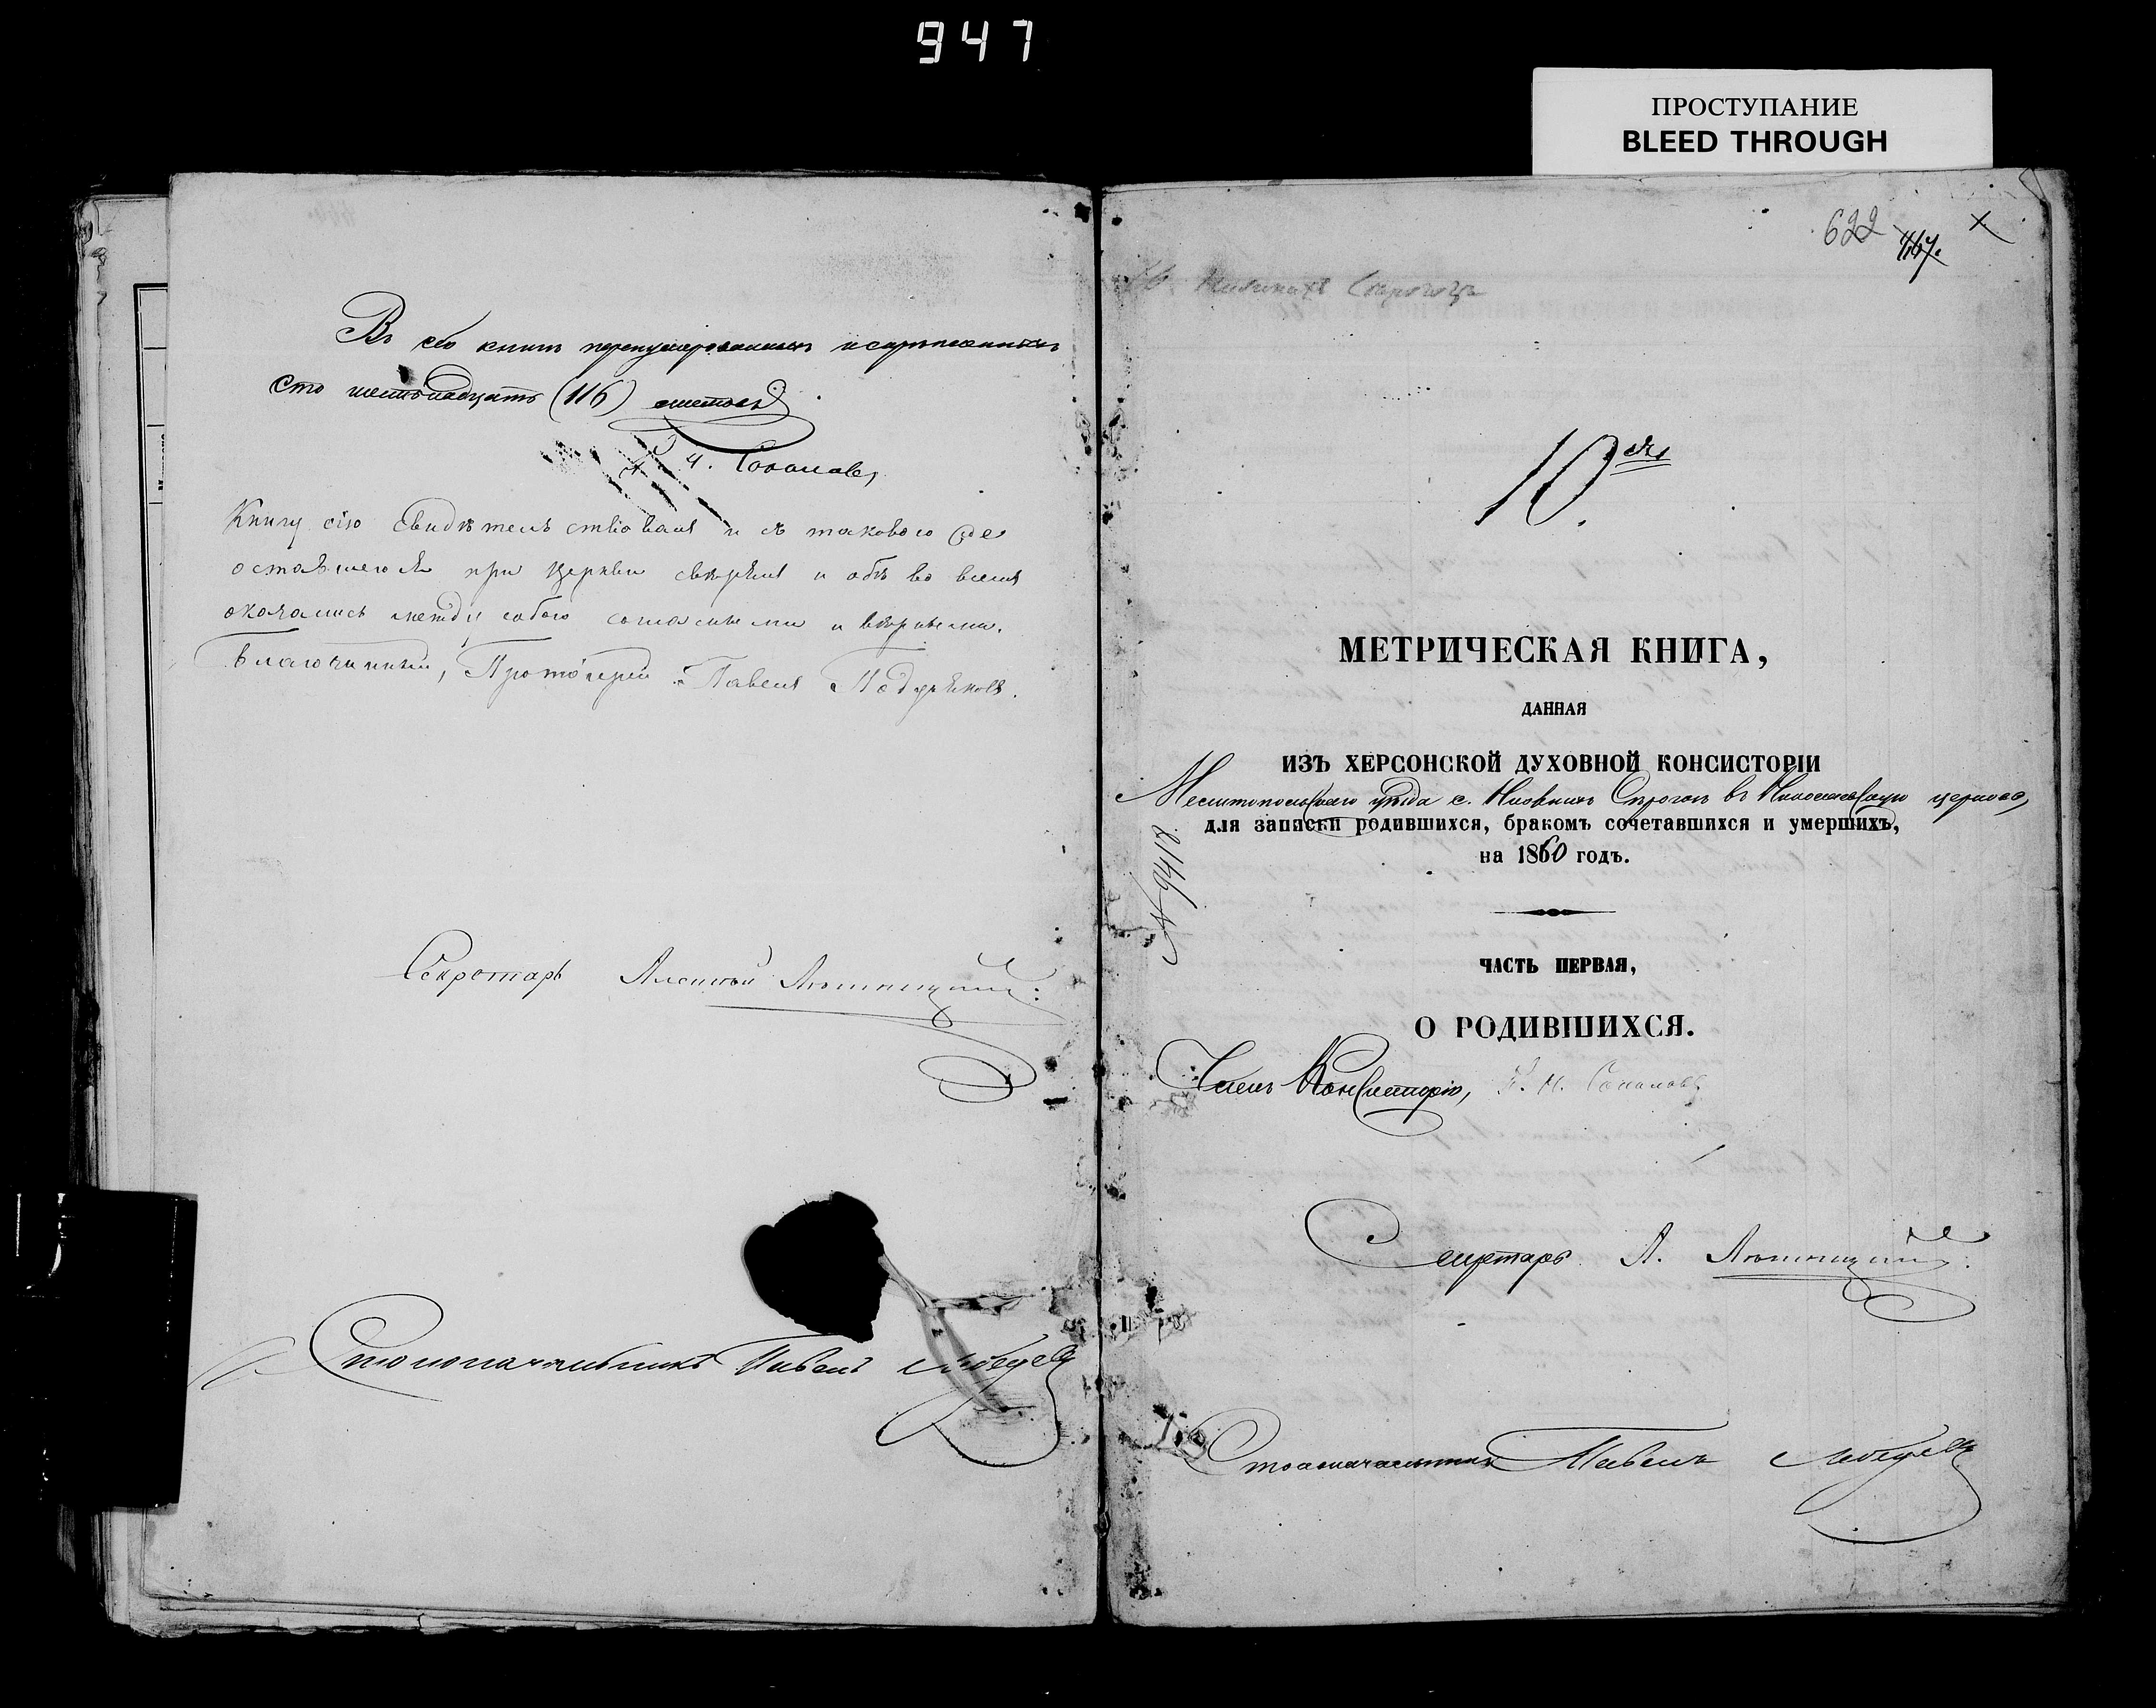 947
ПРОСТУПАНИЕ
BLEED THROUGH
Въ сей книгѣ перенумерованныхъ и скрѣпленныхъ
сто шестьнадцать (116) листовъ
Книгу сію свидѣтельствовалъ и съ таковою же
оставшеюся при церкви свѣрялъ и обѣ во всемъ
оказались между собою согласными и вѣрными.
Благочинный, Протоіерей Павелъ
Секретарь Алексѣй
Столоначальникъ Павелъ
622 467. x
10
МЕТРИЧЕСКАЯ КНИГА,
ДАННАЯ
ИЗЪ ХЕРСОНСКОЙ ДУХОВНОЙ КОНСИСТОРІИ
Мелитопольскаго уѣзда с. Нижнихъ Сѣрогозъ въ Николаевскую церковь
для записки родившихся, бракомъ сочетавшихся и умершихъ,
на 1860 годъ.
№ 9418
ЧАСТЬ ПЕРВАЯ,
О РОДИВШИХСЯ.
Членъ Консисторіи,
Секретарь А.
Столоначальникъ Павелъ